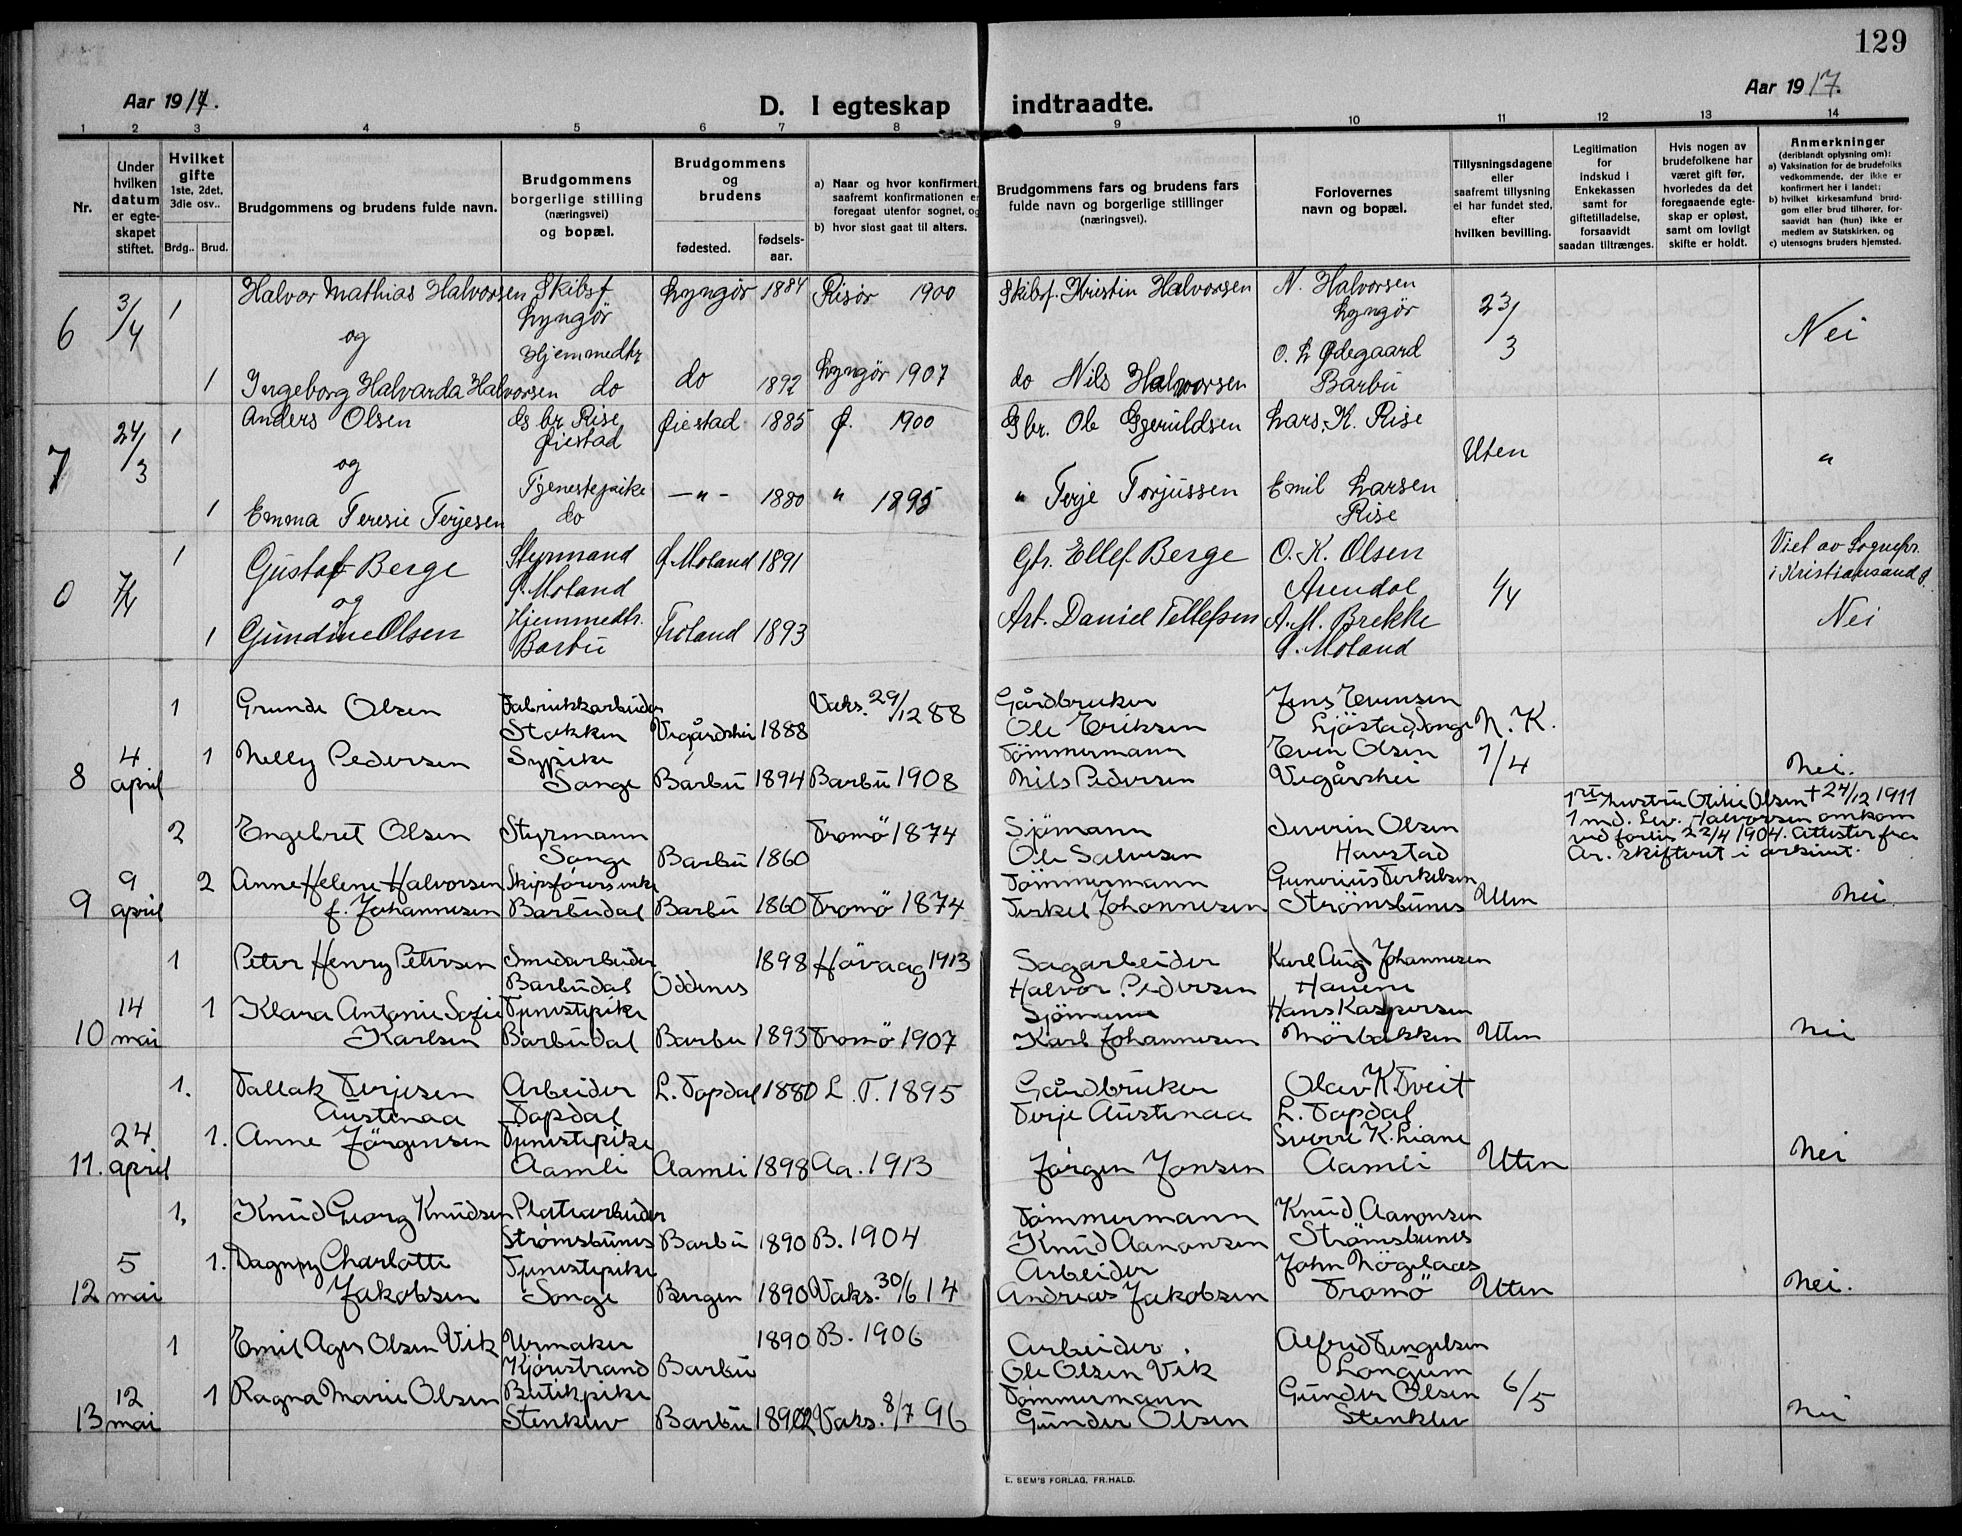 129
Aar 1917.
D. I egteskap indtraadte.
Aar 1917.
1 2 3 4 5 6 7 8 9 10 11 12 13 14
Nr.
Under hvilken datum er egteskapet stiftet.
Hvilket gifte 1ste, 2det, 3die osv..
Brdg.. Brud.
Brudgommens og brudens fulde navn.
Brudgommens borgerlige stilling (næringsvei) og bopæl.
Brudgommens og brudens
fødested. fødsels-aar.
a) Naar og hvor konfirmert, saafremt konfirmationen er foregaat utenfor sognet, og
b) hvor sidst gaat til alters.
Brudgommens fars og brudens fars fulde navn og borgerlige stillinger (næringsvei).
Forlovernes navn og bopæl.
Tillysningsdagene eller saafremt tillysning ei har fundet sted, efter hvilken bevilling.
Legitimation for indskud i Enkekassen samt for giftetilladelse, forsaavidt saadan tiltrænges.
Hvis nogen av brudefolkene har været gift før, hvorledes da det foregaaende egteskap er opløst, samt om lovligt skifte er holdt.
Anmerkninger (deriblandt oplysning om): a) Vaksination for de brudefolks vedkommende, der ikke er konfirmert her i landet; b) hvilket kirkesamfund brudgom eller brud tilhører, forsaavidt han (hun) ikke er medlem av Statskirken, og c) utensogns bruders hjemsted.
6 3/4 1 Halvor Mathias Halvorsen Skibsf. Lyngör 1884 Risör 1900 Skibsf. Kristin Halvorsen N. Halvorsen 23/3 Nei
og Lyngör Lyngör
Hjemmedtr. O. L Ødegaard
1 Ingeborg Halvarda Halvorsen do do 1892 Lyngör 1907 do Nils Halvorsen Barbu
7 24/3 1 Anders Olsen Gbr Rise Øiestad 1885 Ø. 1900 Gbr. Ole Gjeruldsen Lars K. Rise Uten "
og Øiestad
Tjenestepike Emil Larsen
1 Emma Teresie Terjesen do -"- 1880 " 1895 " Terje Torjussen Rise
0 7/4 1 Gustaf Berge Styrmand Ø. Moland 1891 Gbr. Ellef Berge O. K. Olsen 1/4 Viet av Sognepr. i Kristiansand
og Ø. Moland Arendal
1 Gundine Olsen Hjemmedtr. Froland 1893 Arb. Daniel Tellefsen A. M. Brekke Nei
Barbu Ø. Moland
1 Grunde Olsen Fabrikkarbeider Vaks. 29/12 88 Gårdbruker Jens Evensen
Stokken Vegårdshei 1888 Ole Eriksen Ljöstad, Songe N. K.
8 4 april 1 Nelly Pedersen Sypike Tömmermann Even Olsen 1/4
Songe Barbu 1894 Barbu 1908 Nils Pedersen Vegårshei Nei.
2 Engebret Olsen Styrmann Tromö 1874 Sjömann Severin Olsen
Songe Barbu 1860 Ole Salvesen Havstad
1ste hustru Olsen † 24/12 1911
1 md. Halvorsen omkom ved forlis 22/4 1904. Attester fra Ar. skifteret i arkivet.
9 9 april 2 Anne Helene Halvorsen Skipsförers enke Tömmermann Gunerius Terkelsen
f. Johannesen Barbudal Barbu 1860 Tromö 1874 Terkel Johannesen Strömsbunes Uten Nei
1 Peter Henry Petersen Smedarbeider 1898 Hövaag 1913 Sagarbeider Karl Aug Johannesen
Barbudal Oddernes Halvor Pedersen
10 14 mai 1 Klara Antonie Sofie Tjenestepike Sjömann Hans Kaspersen
Karlsen Barbudal Barbu 1893 Tromö 1907 Karl Johannesen Mörbakken Uten Nei
1. Tallak Terjesen Arbeider L. Topdal 1880 L. T. 1895 Gårdbruker Olav K Tveit
Austenaa Topdal Terje Austenaa L. Topdal
11. 24 april 1. Anne Jörgensen Tjenestepike Sverre K. Liane
Aamli Aamli 1898 Aa. 1913 Jörgen Jonsen Aamli Uten Nei
1. Knud Georg Knudsen Platearbeider Tömmermann Knud Aanonsen
Strömsbunes Barbu 1890 B. 1904 Knud Aanonsen Strömsbunes
12 5 mai 1. Dagny Charlotte Tjenestepike Arbeider John
Jakobsen Songe Bergen 1890 Vaks. 30/6 14 Andreas Jakobsen Tromö Uten Nei.
1 Emil Olsen Vik Urmaker 1890 B. 1906 Arbeider. Alfred
Barbu Ole Olsen Vik Longum
13 12 mai 1 Ragna Marie Olsen Butikpike Tömmermann Gunder Olsen 6/5
Stenklev Barbu 1892 Vaks. 8/7 96 Gunder Olsen Stenklev Nei
E. SEM'S FORLAG, FR.HALD.